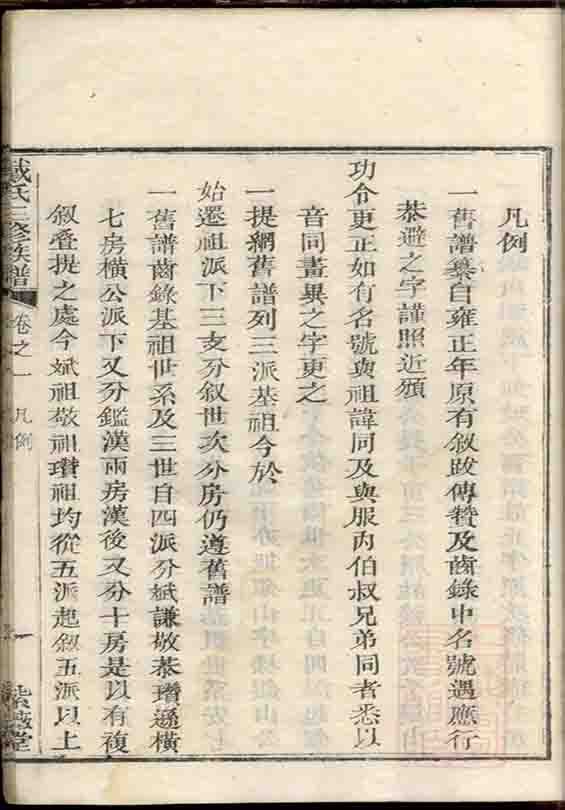 凡例
一舊譜纂自雍正年原有敘跋傳贊及齒錄中名號遇應行
恭避之字謹照近頒
功令更正如有名號與祖諱同及與服內伯叔兄弟同者悉以
音同畫異之字更之
一提綱舊譜列三派基祖今於
始遷祖派下三支分敘世次分房仍遵舊譜
一舊譜齒錄基祖世系及三世自四派分斌謙敬恭瓚遜橫
七房橫公派下又分鑑漢兩房漢後又分十房是以有複
敘疊提之處今斌祖敬祖瓚祖均從五派起敘五派以上
戴氏三修族譜 卷之一 凡例 一 紫薇堂